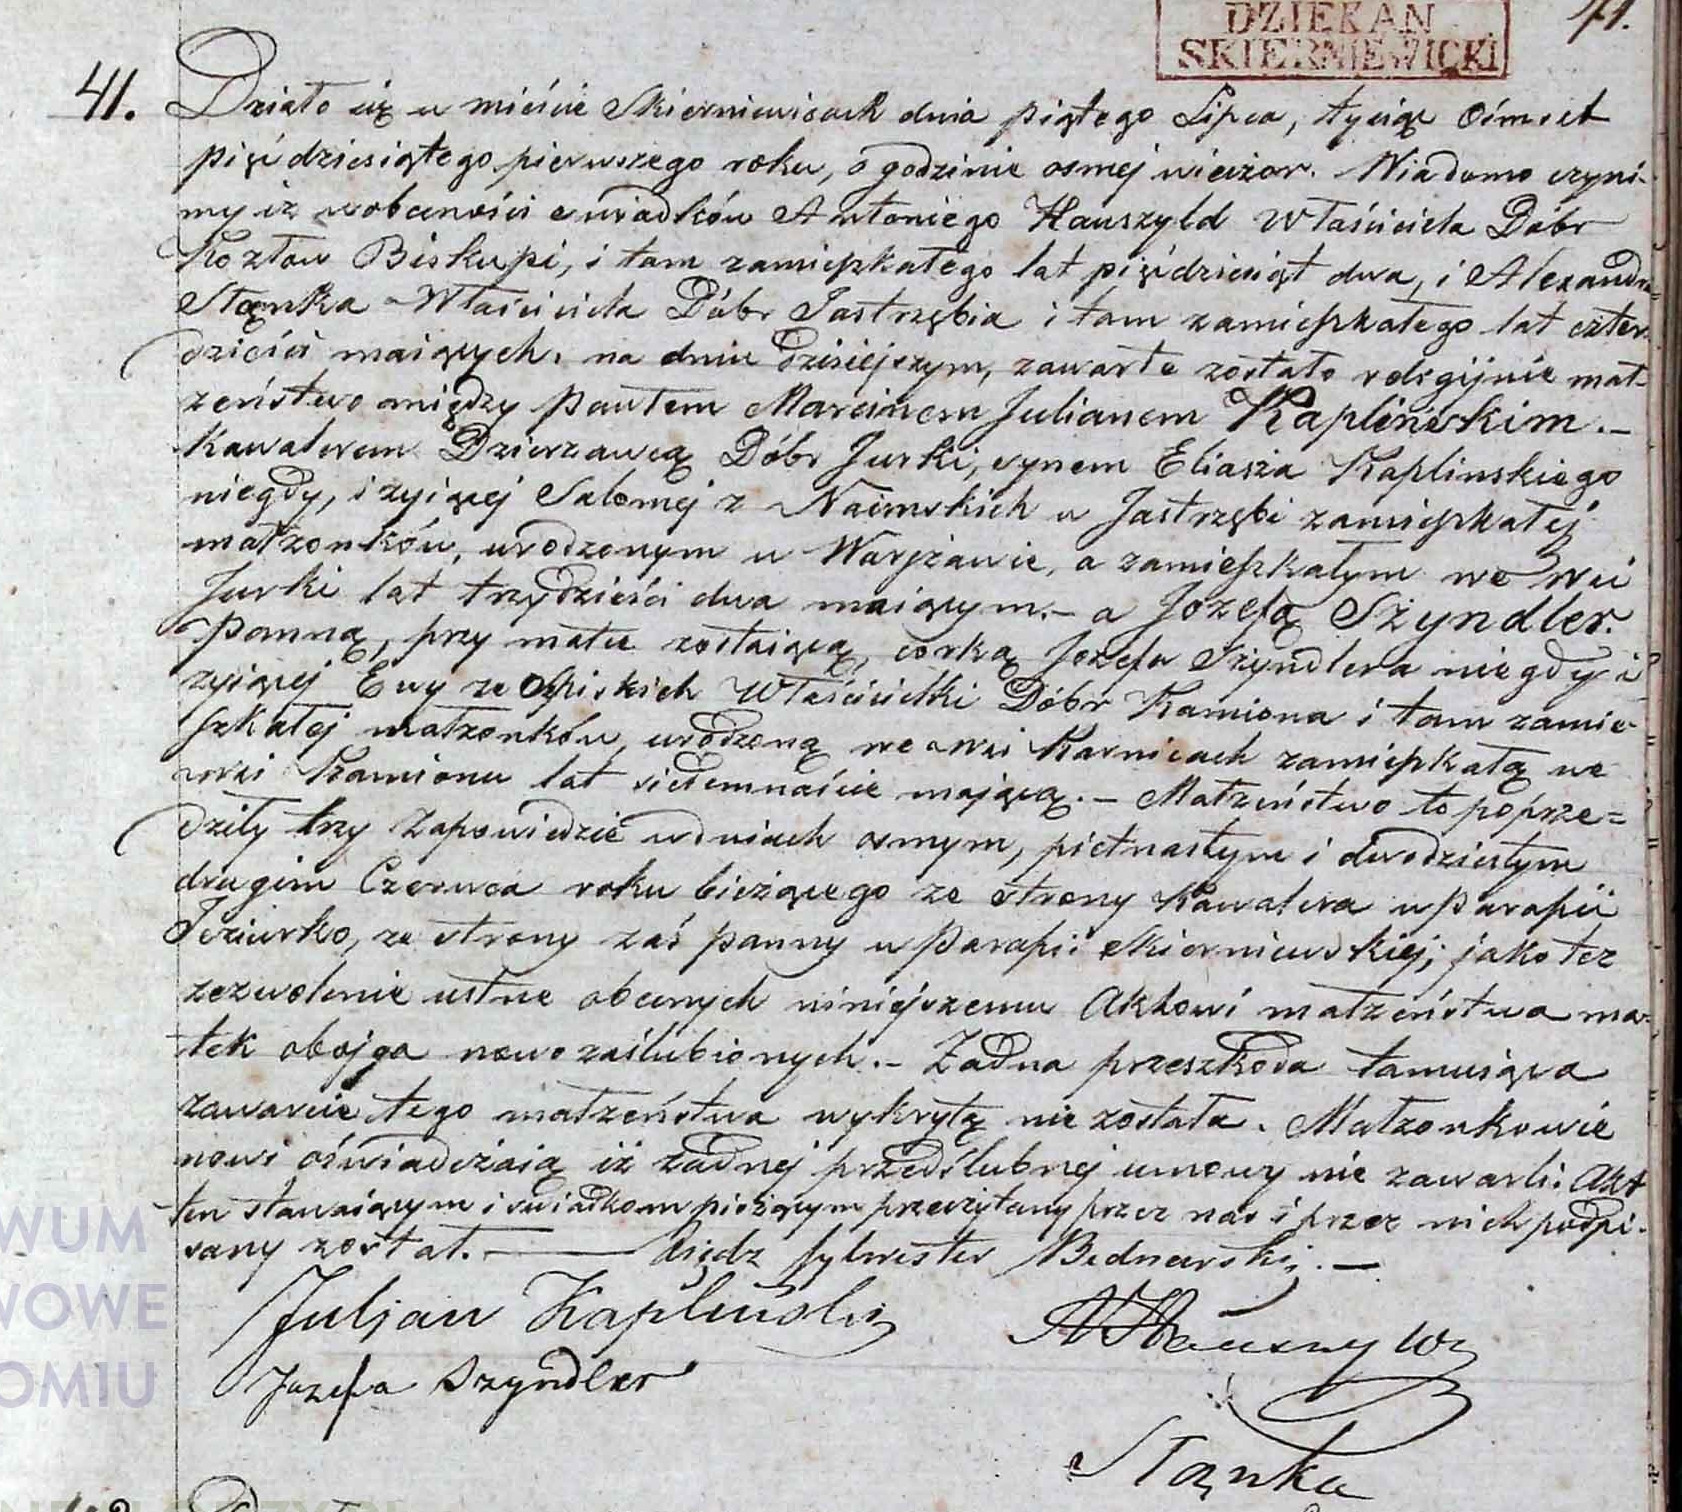 DZIEKAN
SKIERNIEWICKI
41.
41. Działo się w mieście Skierniewicach dnia piątego Lipca, tysiąc Ośmset
pięćdziesiątego pierwszego roku, o godzinie osmej wieczor. Wiadomo czyni-
my iż w obecności swiadków Antoniego Hauszyld Właściciela Dóbr
Kozłow Biskupi, i tam zamieszkałego lat pięćdziesiąt dwa, i Alexandra
Stąnka Właściciela Dóbr Jastrzębia i tam zamieszkałego lat czter-
dzieści maiących, na dniu dzisiejszym, zawarte zostało religijnie mał-
żeństwo między Pawłem Marcinem Julianem Kaplińskim.-
Kawalerem Dzierzawcą Dóbr Jurki, synem Eliasza Kaplinskiego
niegdy, i zyiącej Salomej z Naimskich w Jastrzębi zamieszkałej
małzonków, urodzonym w Warszawie, a zamieszkałym we wsi
Jurki lat trzydzieści dwa maiącym.- a Jozefą Szyndler.
Panną, przy matce zostaiącą, corką Jozefa Szyndlera niegdy i
zyiącej Ewy ze Właścicielki Dóbr Kamiona i tam zamie-
szkałej małzonków, urodzoną we wsi Karnicach zamieszkałą we
wsi Kamionu lat siedemnaście mającą.- Małzeństwo to poprze=
dziły trzy Zapowiedzie w dniach osmym, piętnastym i dwudziestym
drugim Czerwca roku bieżącego ze strony Kawalera w Parafii
Jeziurko, ze strony zaś panny w Parafii Skierniewskiej; jako tez
zezwolenie ustne obecnych niniejszemu Aktowi małzeństwa ma-
tek obojga nowozaślubionych.- Żadna przeszkoda tamuiąca
zawarcie tego małzeństwa wykrytą nie została. Małzonkowie
nowi oświadczaią iż żadnej przedślubnej umowy nie zawarli. Akt
ten stawaiącym i swiadkom piszącym przeczytany przez nas i przez nich podpi-
sany został. — Xsiądz Sylwester Bednarski.—
Juljan Kapliński
A Hauszyld
Jozefa Szyndler
Stąnka
WUM
WOWE
OMIU